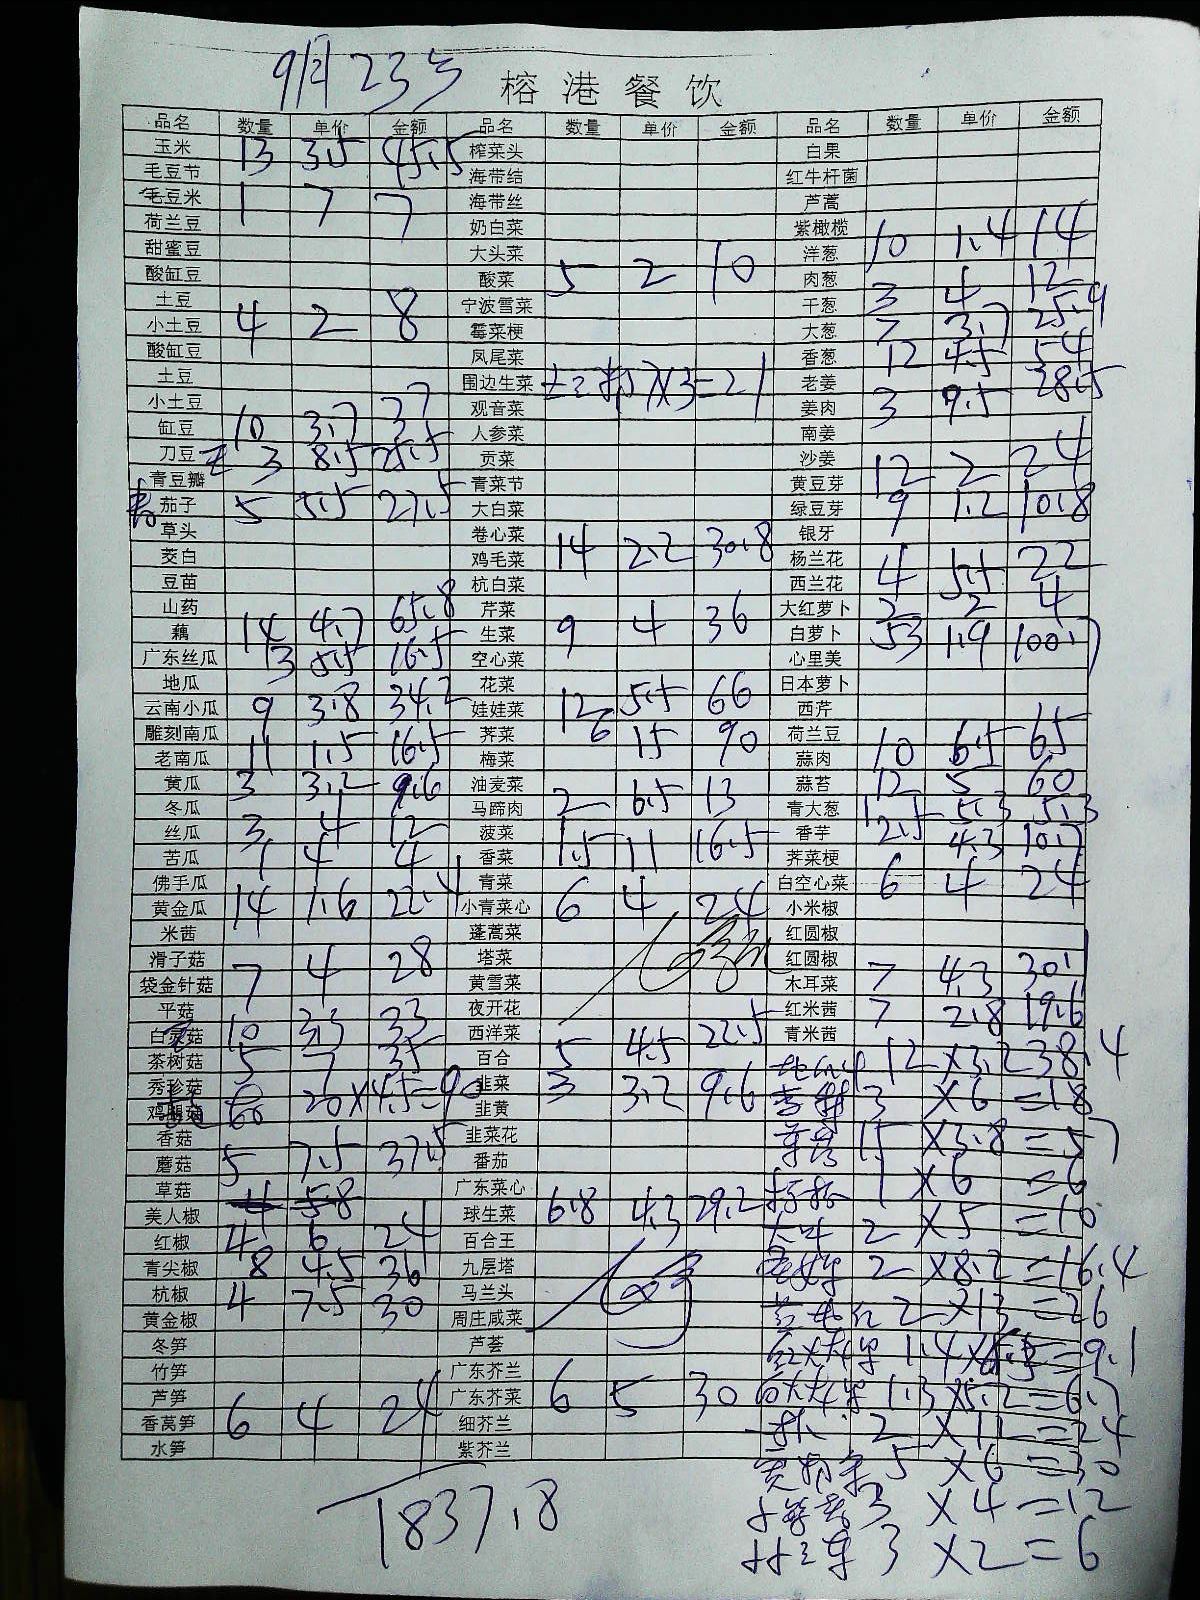 9月23号
榕港餐饮
品名 数量 单价 金额 品名 数量 单价 金额 品名 数量 单价 金额
玉米 13 3.5 45.5 榨菜头 白果
毛豆节 海带结 红牛杆菌
毛豆米 1 7 7 海带丝 芦蒿
荷兰豆 奶白菜 紫橄榄 10 1.4 14
甜蜜豆 大头菜 洋葱
酸缸豆 酸菜 5 2 10 肉葱 3 4 12
土豆 宁波雪菜 干葱
小土豆 4 2 8 霉菜梗 大葱 7 3.7 25.9
酸缸豆 凤尾菜 香葱 12 4.5 54
土豆 围边生菜 7×3=21 老姜
小土豆 观音菜 姜肉 3 9.5 28.5
缸豆 10 3.7 37 人参菜 南姜
刀豆 3 8.5 25.5 贡菜 沙姜
青豆瓣 青菜节 黄豆芽 12 2 24
茄子 5 5.5 27.5 大白菜 绿豆芽 9 1.2 10.8
草头 卷心菜 银牙
茭白 鸡毛菜 14 2.2 30.8 杨兰花
豆苗 杭白菜 西兰花 4 5.5 22
山药 芹菜 大红萝卜 2 2 4
藕 14 4.7 65.8 生菜 9 4 36 白萝卜 53 1.9 100.7
广东丝瓜 3 5.5 16.5 空心菜 心里美
地瓜 花菜 日本萝卜
云南小瓜 9 3.8 34.2 娃娃菜 12 5.5 66 西芹
雕刻南瓜 荠菜 6 15 90 荷兰豆
老南瓜 11 1.5 16.5 梅菜 蒜肉 10 6.5 65
黄瓜 3 3.2 9.6 油麦菜 蒜苔 12 5 60
冬瓜 马蹄肉 2 6.5 13 青大葱 1 5.3 5.3
丝瓜 3 4 12 菠菜 香芋 2.5 4.3 10.7
苦瓜 1 4 4 香菜 1.5 11 16.5 荠菜梗
佛手瓜 青菜 白空心菜 6 4 24
黄金瓜 14 1.6 22.4 小青菜心 6 4 24 小米椒
米茜 蓬蒿菜 红圆椒
滑子菇 塔菜 红圆椒
袋金针菇 7 4 28 黄雪菜 木耳菜 7 4.3 30.1
平菇 夜开花 红米茜 7 2.8 19.6
白灵菇 10 3.3 33 西洋菜 青米茜
茶树菇 5 7 35 百合 5 4.5 22.5 12 ×3.2 38.4
秀珍菇 韭菜 3 3.2 9.6 3 ×6 =18
鸡腿菇 20×4.5=90 韭黄
香菇 韭菜花 1.5 ×3.8=5.7
蘑菇 5 7.5 37.5 番茄 1 ×6 =6
草菇 广东菜心
美人椒 球生菜 6.8 4.3 29.2 2 ×5 =10
红椒 4 6 24 百合王
青尖椒 8 4.5 36 九层塔 2 ×8.2=16.4
杭椒 4 7.5 30 马兰头
黄金椒 周庄咸菜 2 ×13=26
冬笋 芦荟 1.4 =9.1
竹笋 广东芥兰
芦笋 广东芥菜 6 5 30 1.3 ×5.2=6.7
香莴笋 6 4 24 细芥兰 2 =24
水笋 紫芥兰
5 ×6 =30
3 ×4=12
3 ×2=6
1837.8